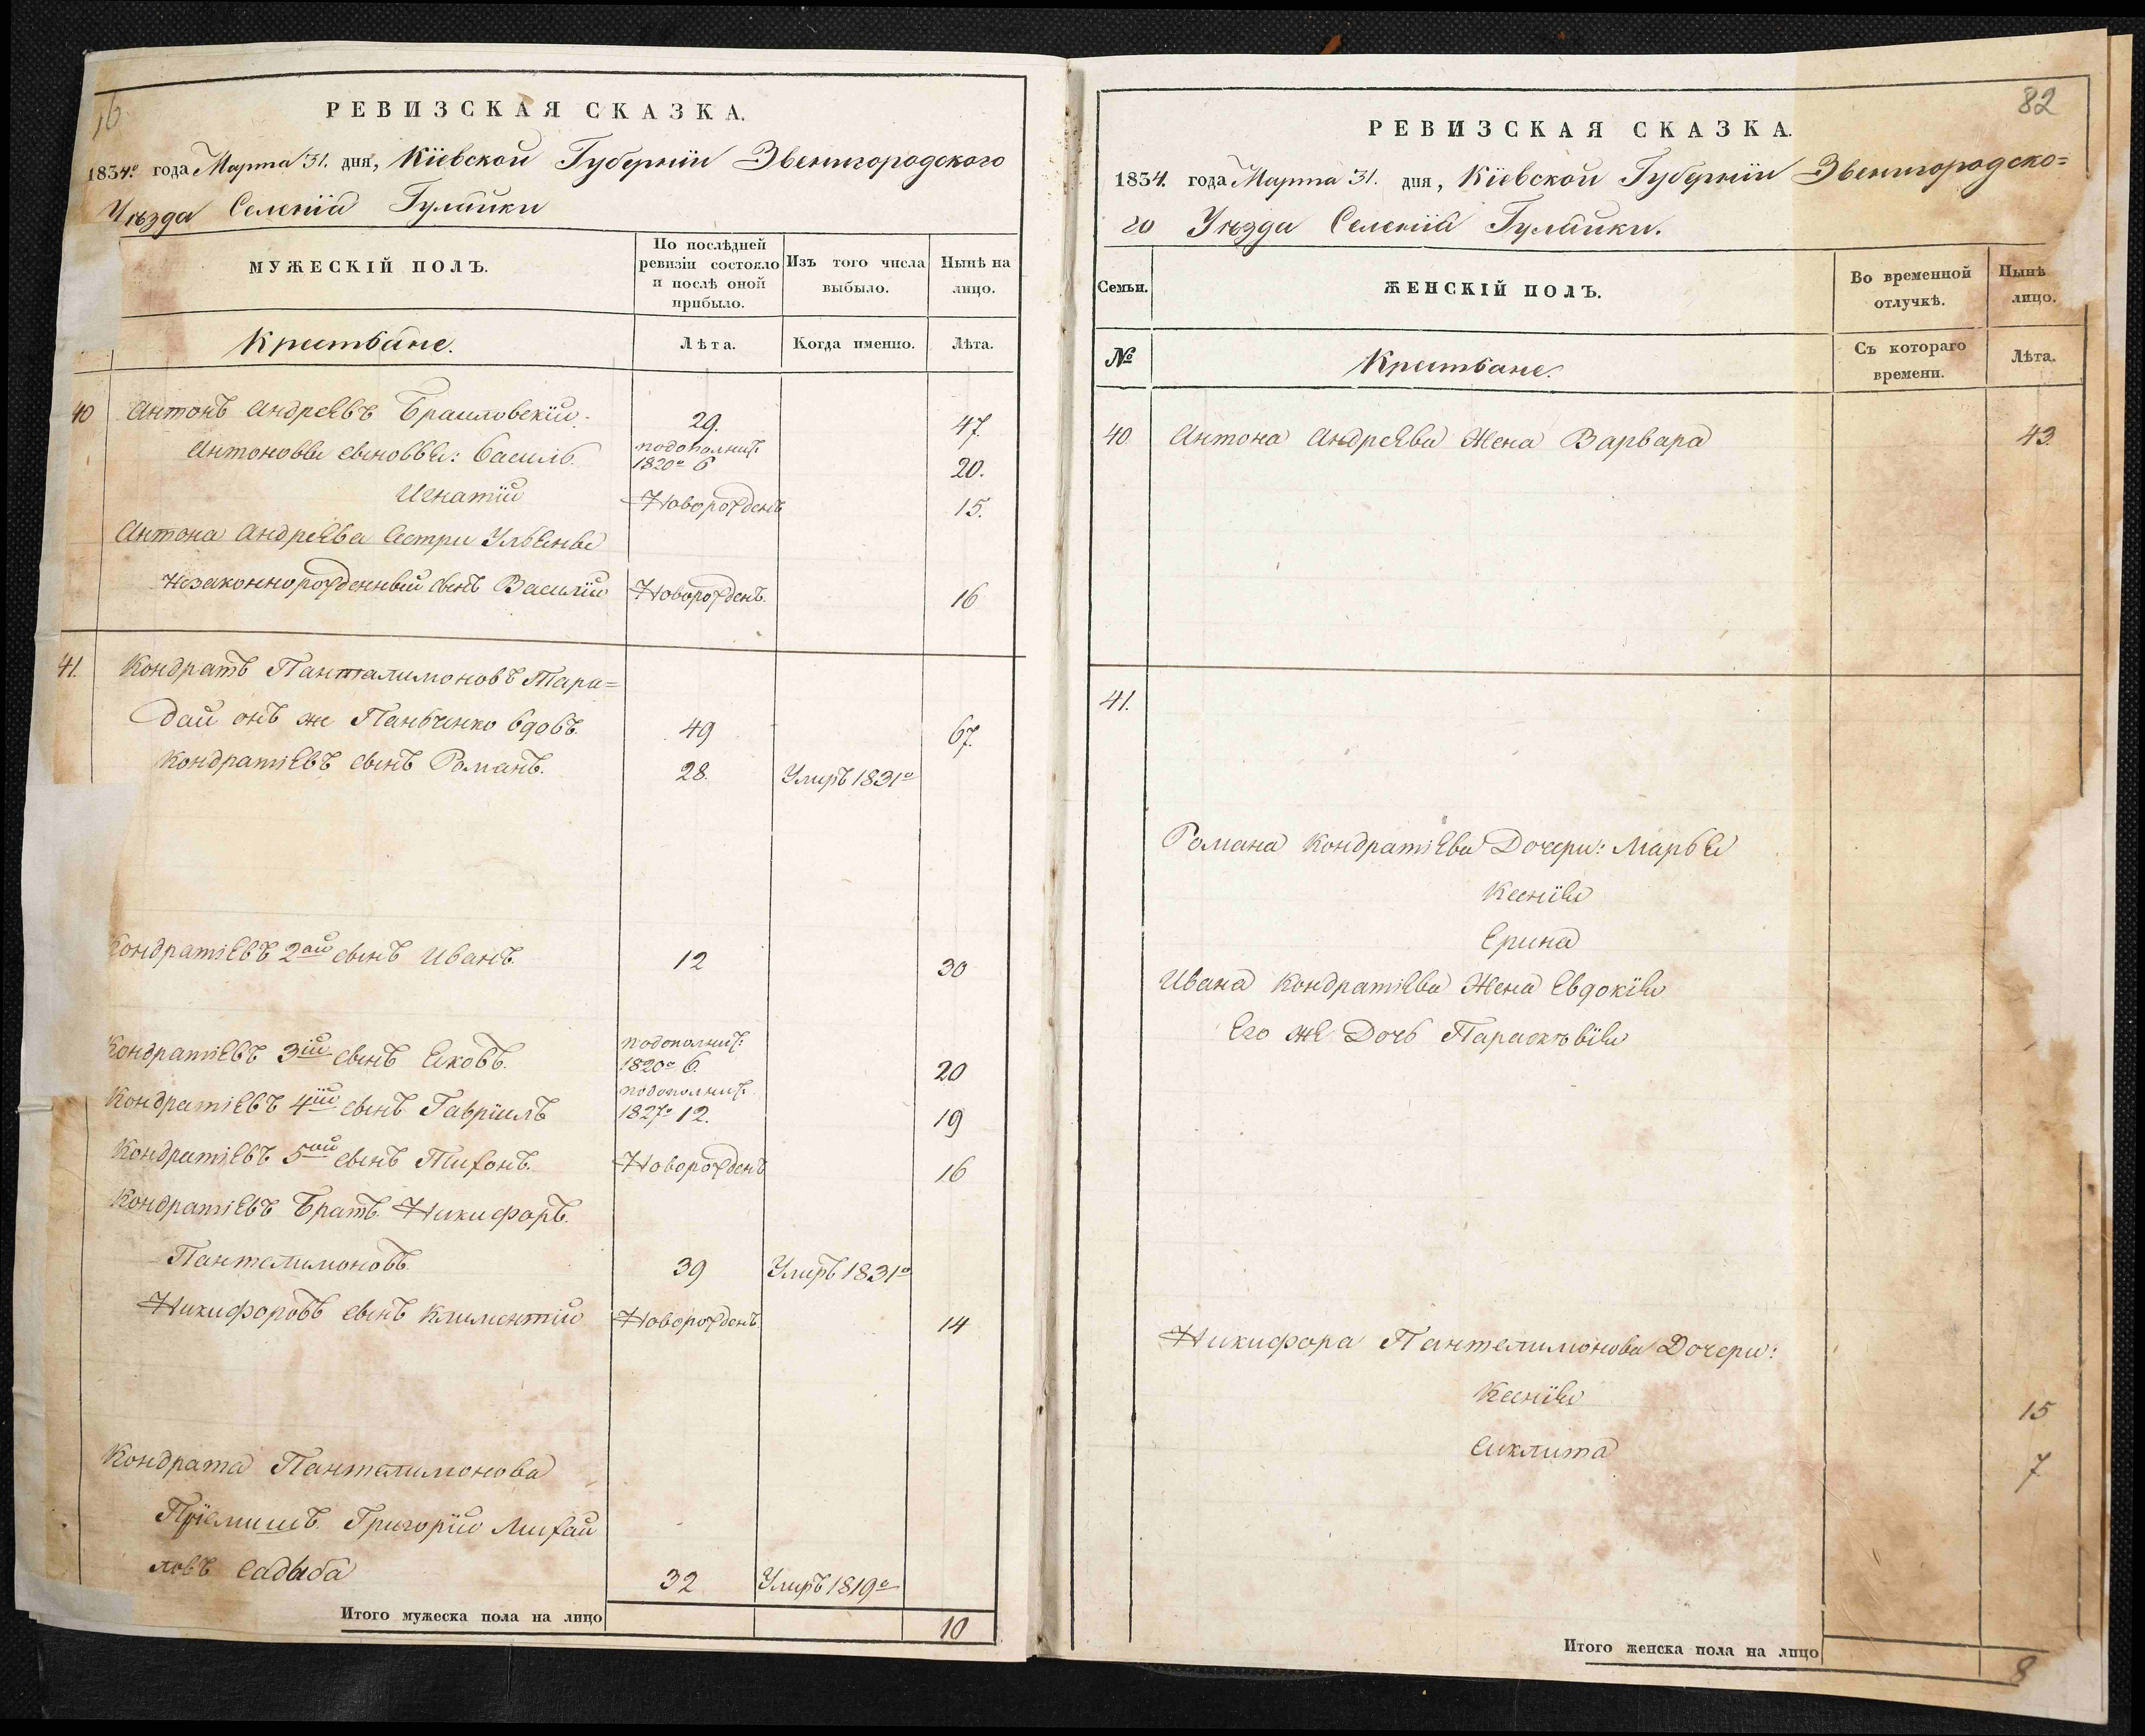 16
РЕВИЗСКАЯ СКАЗКА.
1834.го года Марта 31. дня, Кіевской Губерніи Звенигородского
Уѣзда Селенія Гулайки
МУЖЕСКІЙ ПОЛЪ.
По послѣдней ревизіи состояло и послѣ оной прибыло.
Изъ того числа выбыло.
Нынѣ на лицо.
Крестьяне.
Лѣта.
Когда именно.
Лѣта.
40 Антонъ Андреевъ Браиловскій. 29. 47.
Антоновы сыновья: Василь подополнит. 1820го 6 20.
Игнатій Новорожденъ 15.
Антона Андреева Сестри Ульяны
незаконнорожденный сынъ Василій Новорожденъ. 16
41. Кондратъ Панталимоновъ Тара=
дай онъ же Панченко вдовъ. 49 67.
Кондратіевъ сынъ Романъ. 28. Умеръ 1831го
Кондратіевъ 2ой сынъ Иванъ. 12 30
Кондратіевъ 3ій сынъ Яковъ. подополнит: 1820го 6. 20
Кондратіевъ 4ій сынъ Гавріилъ подополнит. 1827го 12. 19
Кондратіевъ 5ой сынъ Тихонъ. Новорожденъ 16
Кондратіевъ Братъ Никифоръ.
Пантелимоновъ. 39 Умеръ 1831го
Никифоровъ сынъ Климентій Новорожденъ. 14
Кондрата Пантелимонова
Пріемышъ. Григорій Михай
ловъ Садыба 32 Умеръ 1819го
Итого мужеска пола на лицо 10
82
РЕВИЗСКАЯ СКАЗКА.
1834. года Марта 31. дня, Кіевской Губерніи Звенигородско=
го Уѣзда Селенія Гулайки.
Семьи.
ЖЕНСКІЙ ПОЛЪ.
Во временной отлучкѣ.
Нынѣ лицо.
№
Крестьяне.
Съ котораго времени.
Лѣта.
40 Антона Андреева Жена Варвара 43.
41.
Романа Кондратіева Дочери: Марья
Ксенія
Ерина
Ивана Кондратіева Жена Евдокія
Его же Дочь Параскѣвія
Никифора Пантелимонова Дочери:
Ксенія 15
7
Итого женска пола на лицо 8